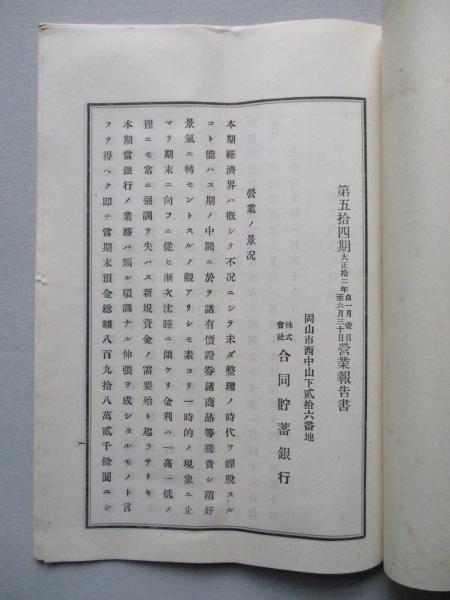 第五拾四期 大正拾二年 自一月壹日 至六月三十日 營業報告書
岡山市西中山下貳拾六番地
株式會社 合同貯蓄銀行
營業ノ景况
本期經濟界ハ概シテ不况ニシテ未ダ整理ノ時代ヲ蟬脫スル
コト能ハス期ノ中間ニ於テ諸有價證券諸商品等騰貴シ稍好
景氣ニ轉セントスルノ觀アリシモ素ヨリ一時的ノ現象ニ止
マリ期末ニ向フニ從ヒ漸次沈睡ニ傾ケリ金利ハ一高一低ノ
裡ニモ常ニ强調ヲ失ハス新規資金ノ需要殆ト起ラサリキ
本期當銀行ノ業務ハ頗ル順調ナル伸張ヲ成シタルモノト言
フヲ得ヘク即チ當期末預金總額八百九拾八萬貳千餘圓ニシ
一